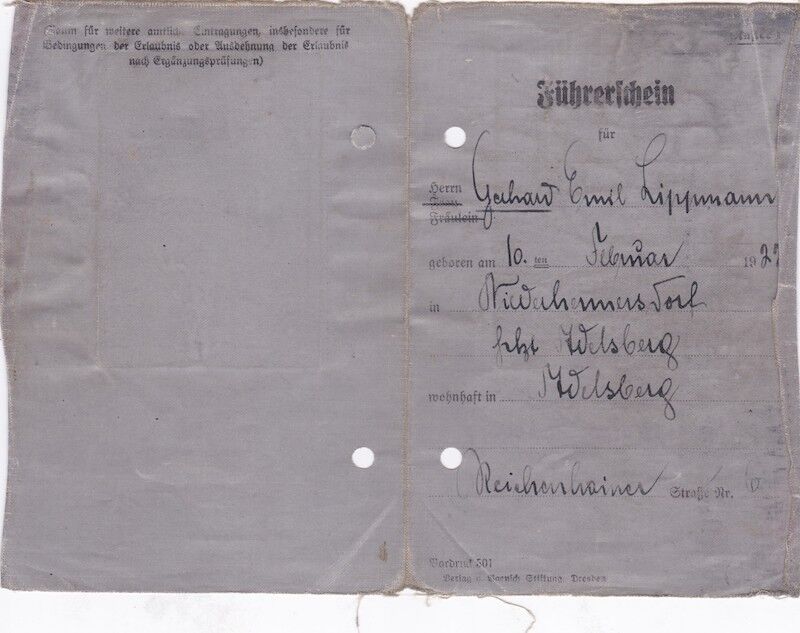 (Raum für weitere amtliche Eintragungen, insbesondere für
Bedingungen der Erlaubnis oder Ausdehnung der Erlaubnis
nach Ergänzungsprüfungen)
Führerschein
für
Herrn
Frau
Fräulein
Gerhard Emil Lippmann
geboren am 10. ten Februar 1922
in Niederhermersdorf
jetzt Adelsberg
wohnhaft in Adelsberg
Reichenhainer Straße Nr.
Vordruck 301
Verlag Stiftung, Dresden